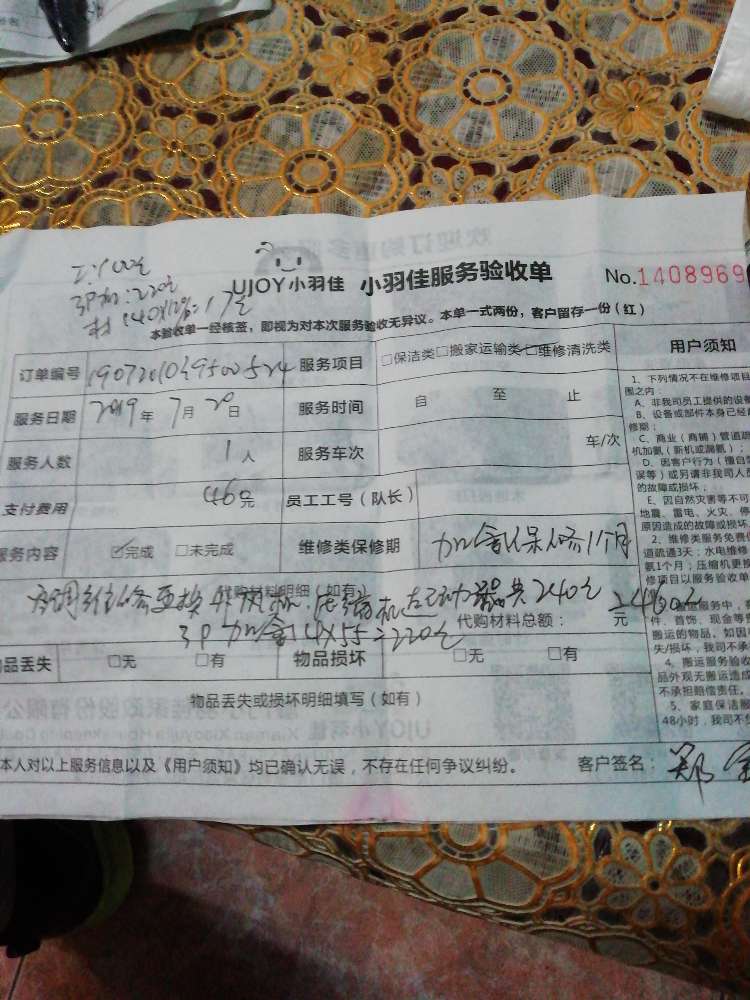 工:100元
3P加:220元
材140X12%=17元
UJOY小羽佳 小羽佳服务验收单 No.1408969
本验收单一经核签，即视为对本次服务验收无异议。本单一式两份，客户留存一份（红）
订单编号 1907201039500524 服务项目 □保洁类□搬家运输类□维修清洗类 用户须知
服务日期 2019年7月20日 服务时间 自 至 止
服务人数 1人 服务车次 车/次
支付费用 元 员工工号（队长）
服务内容 ☑完成 □未完成 维修类保修期 加氟保修1个月
代购材料明细（如有）
空调维修更换外风机 压缩机起动器共240元
代购材料总额： 元
3P加氟 4X55=220元
物品丢失 □无 □有 物品损坏 □无 □有
物品丢失或损坏明细填写（如有）
本人对以上服务信息以及《用户须知》均已确认无误，不存在任何争议纠纷。 客户签名：郑
1、下列情况不在维修项目
围之内：
A、非我司员工提供的设备
B、设备或部件本身已经超
修期；
C、商业（商铺）管道疏
机加氨（新机或漏氨）；
D、因客户行为（擅自
误等）或另请非我司人员
的故障或损坏；
E、因自然灾害等不可
地震、雷电、火灾、停
原因造成的故障或损坏
2、维修类服务免费保
道疏通3天；水电维修
氨1个月；压缩机更换
修项目以服务验收单
服务中，
件、首饰、现金等贵
搬运的物品，如因
失/损坏，我司不承
4、搬运服务验收
品外观无搬运造成
不承担赔偿责任，
5、家庭保洁服
48小时，我司不